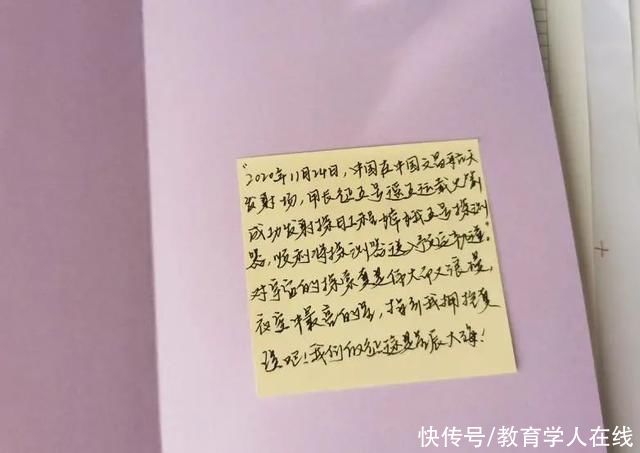 "2020年11月24日,中国在中国文昌航天
发射场,用长征五号遥五运载火箭
成功发射探月工程嫦娥五号探测
器,顺利将探测器送入预定轨道。"
对宇宙的探索真是伟大却又浪漫,
夜空中最亮的星,指引我拥抱
吧!我们的征途是星辰大海!
快传号/教育学人在线